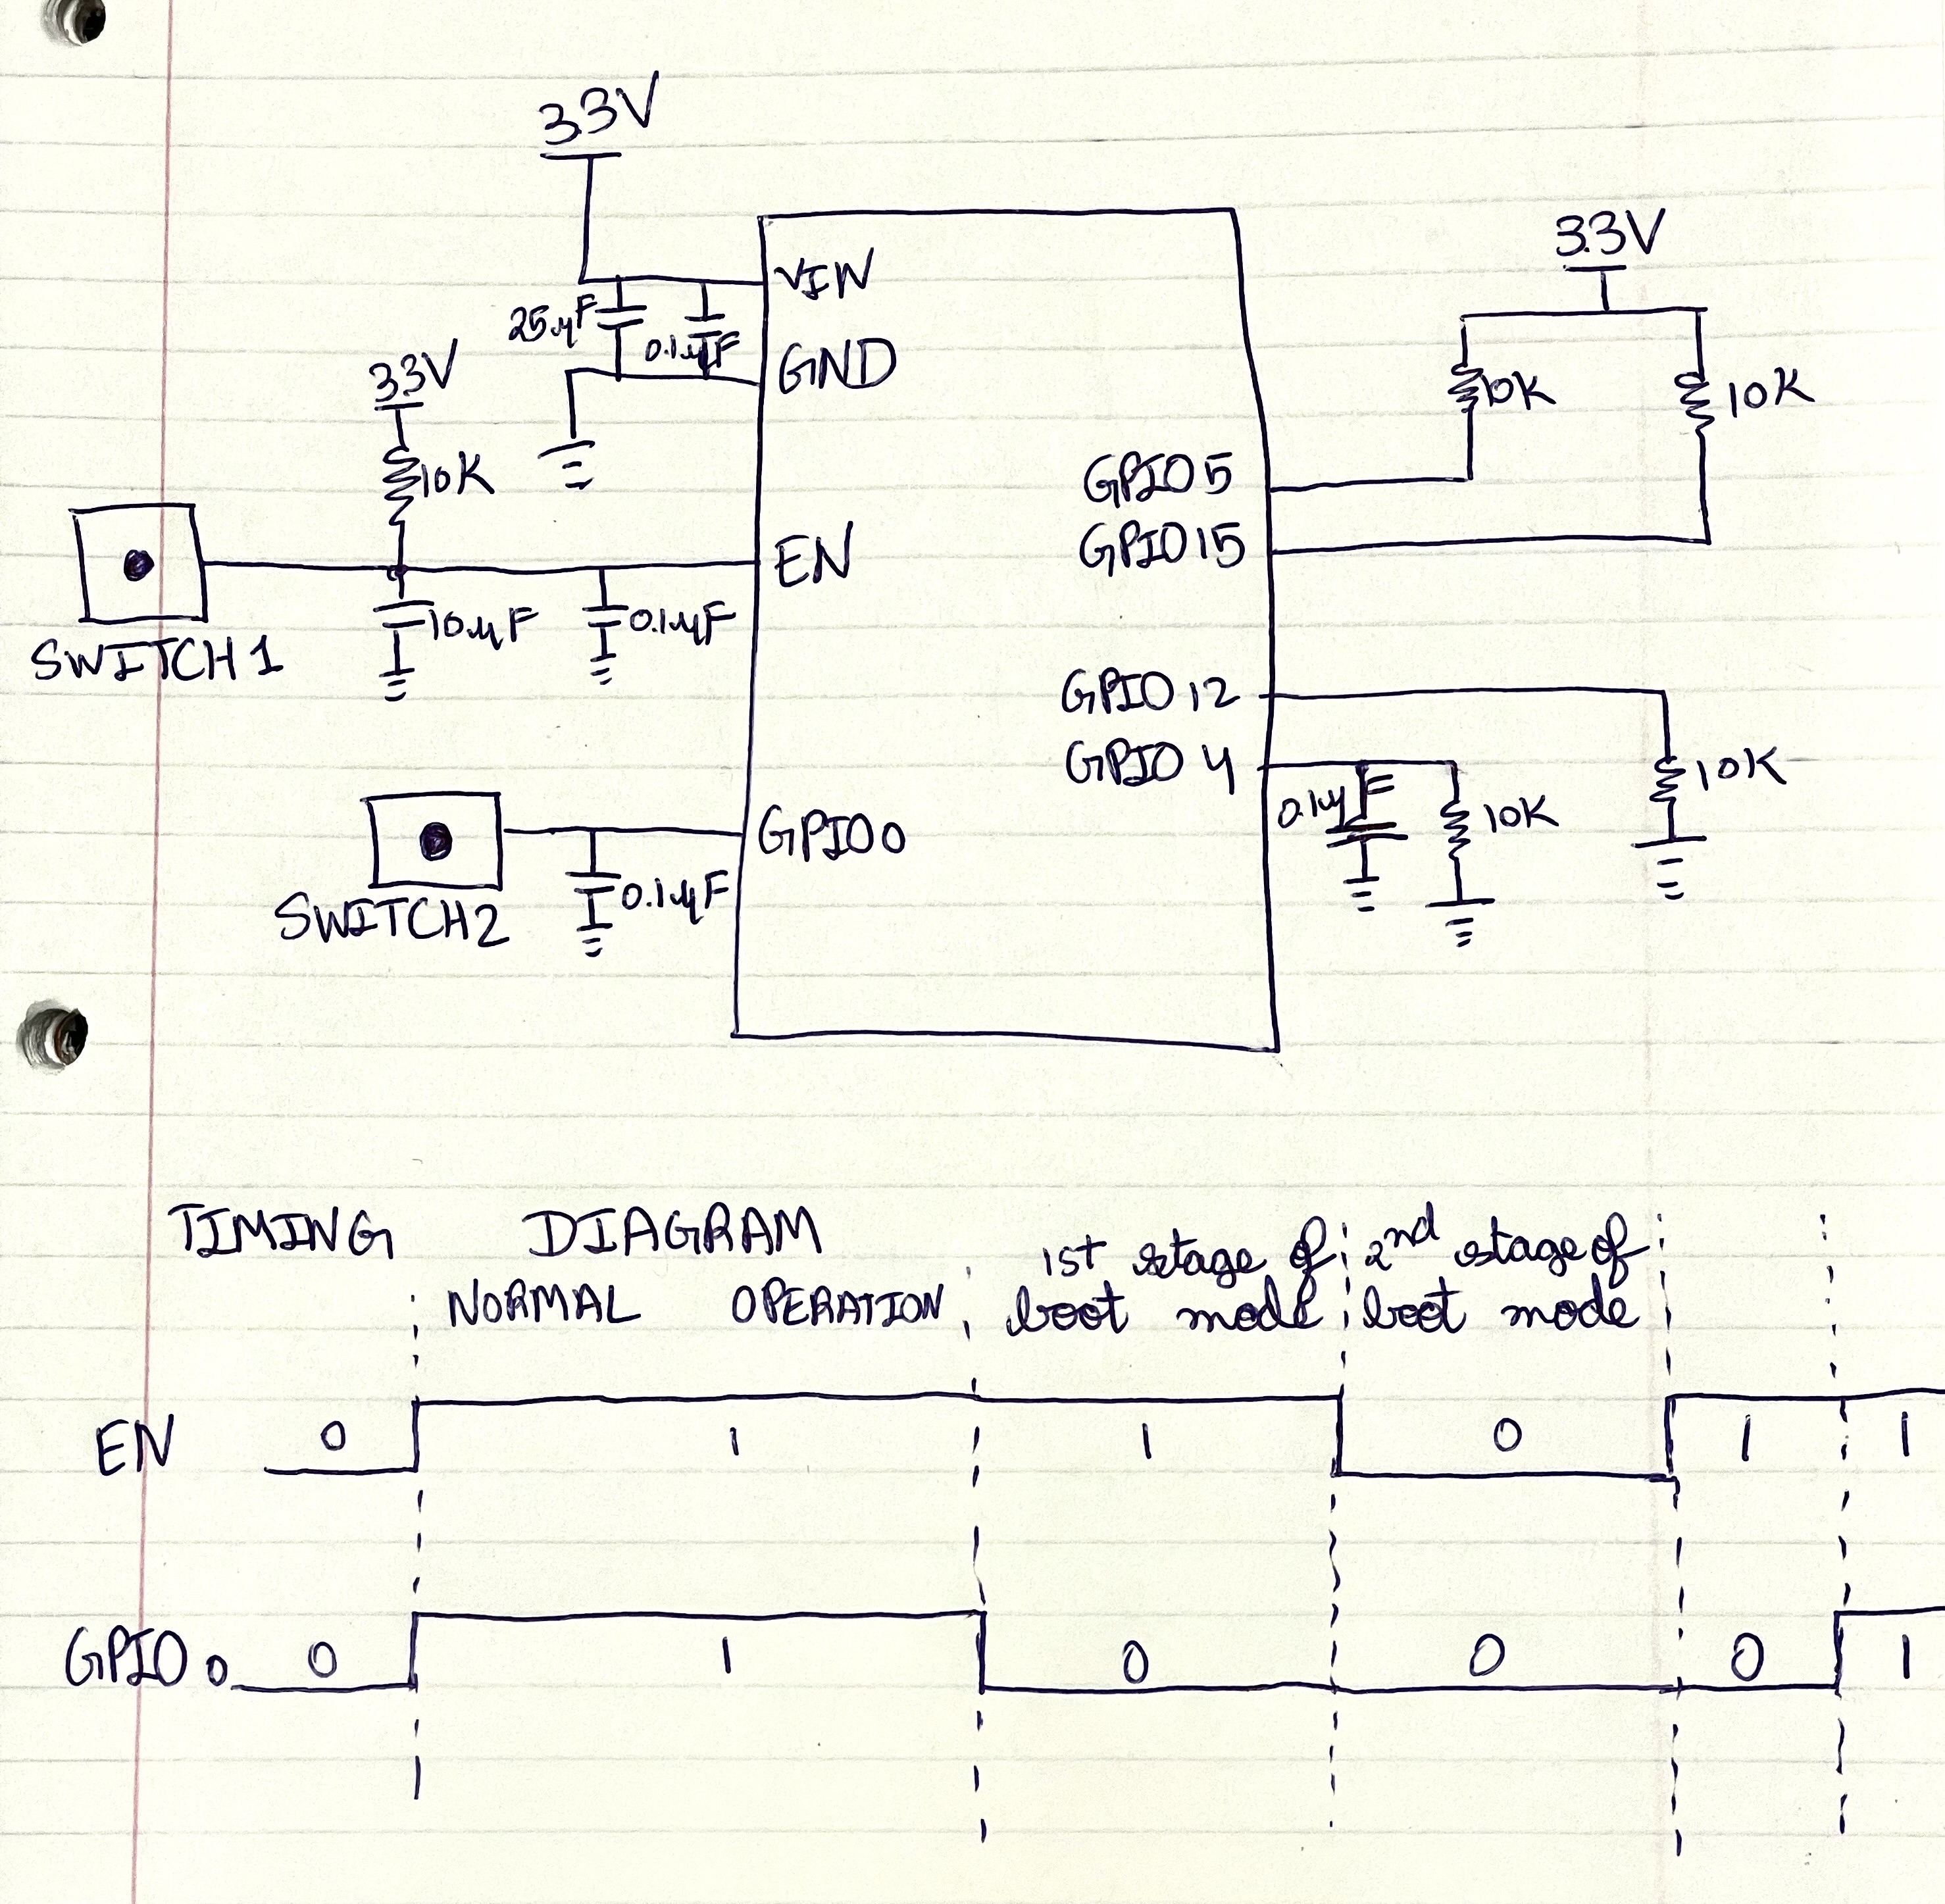 3.3V
3.3V
VIN
25µF
0.1µF
GND
3.3V
10K
10K
10K
GPIO 5
GPIO 15
EN
10µF
0.1µF
SWITCH 1
GPIO 12
GPIO 4
10K
0.1µF
10K
GPIO0
0.1µF
SWITCH2
TIMING DIAGRAM
1st stage of 2nd stage of
NORMAL OPERATION boot mode boot mode
EN 0 1 1 0 1 1
GPIO 0 0 1 0 0 0 1